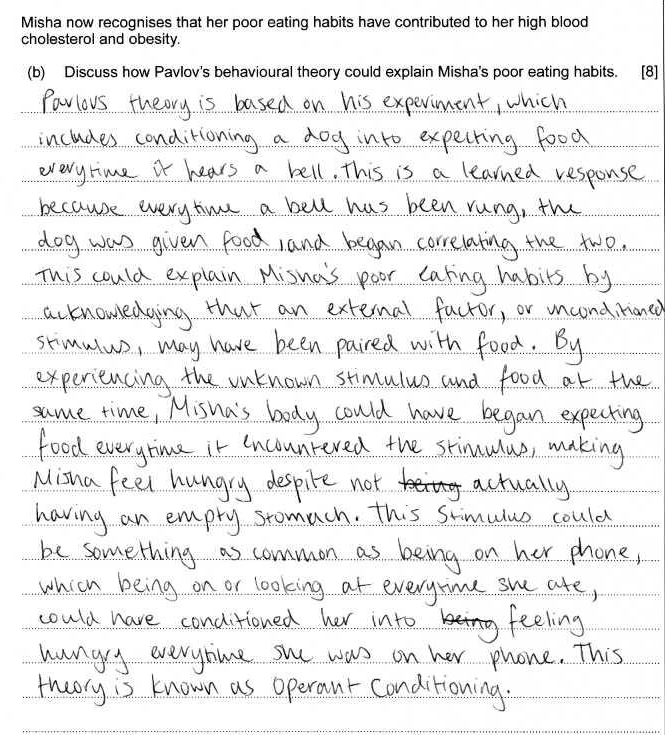 Misha now recognises that her poor eating habits have contributed to her high blood
cholesterol and obesity.
(b) Discuss how Pavlov's behavioural theory could explain Misha's poor eating habits. [8]
Pavlovs theory is based on his experiment, which
includes conditioning a dog into expecting food
everytime it hears a bell. This is a learned response
because everytime a bell has been rung, the
dog was given food, and began correlating the two.
This could explain Misha's poor eating habits by
acknowledging that an external factor, or unconditioned
stimulus, may have been paired with food. By
experiencing the unknown stimulus and food at the
same time, Misha's body could have began expecting
food everytime it encountered the stimulus, making
Misha feel hungry despite not being actually
having an empty stomach. This stimulus could
be something as common as being on her phone,
which being on or looking at everytime she ate,
could have conditioned her into being feeling
hungry everytime she was on her phone. This
theory is known as Operant Conditioning.